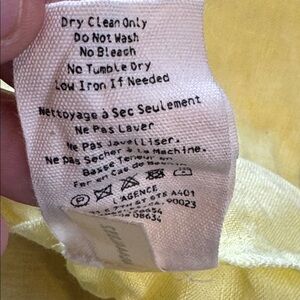 Dry Clean Only
Do Not Wash
No Bleach
No Tumble Dry
Low Iron If Needed
Nettoyage à Sec Seulement
Ne Pas Laver
Ne Pas Javelliser.
Ne Pas Secher à La Machine.
Basse Teneur en
Fer en Cas de
L'AGENCE
7TH ST STE A401
90023
08634